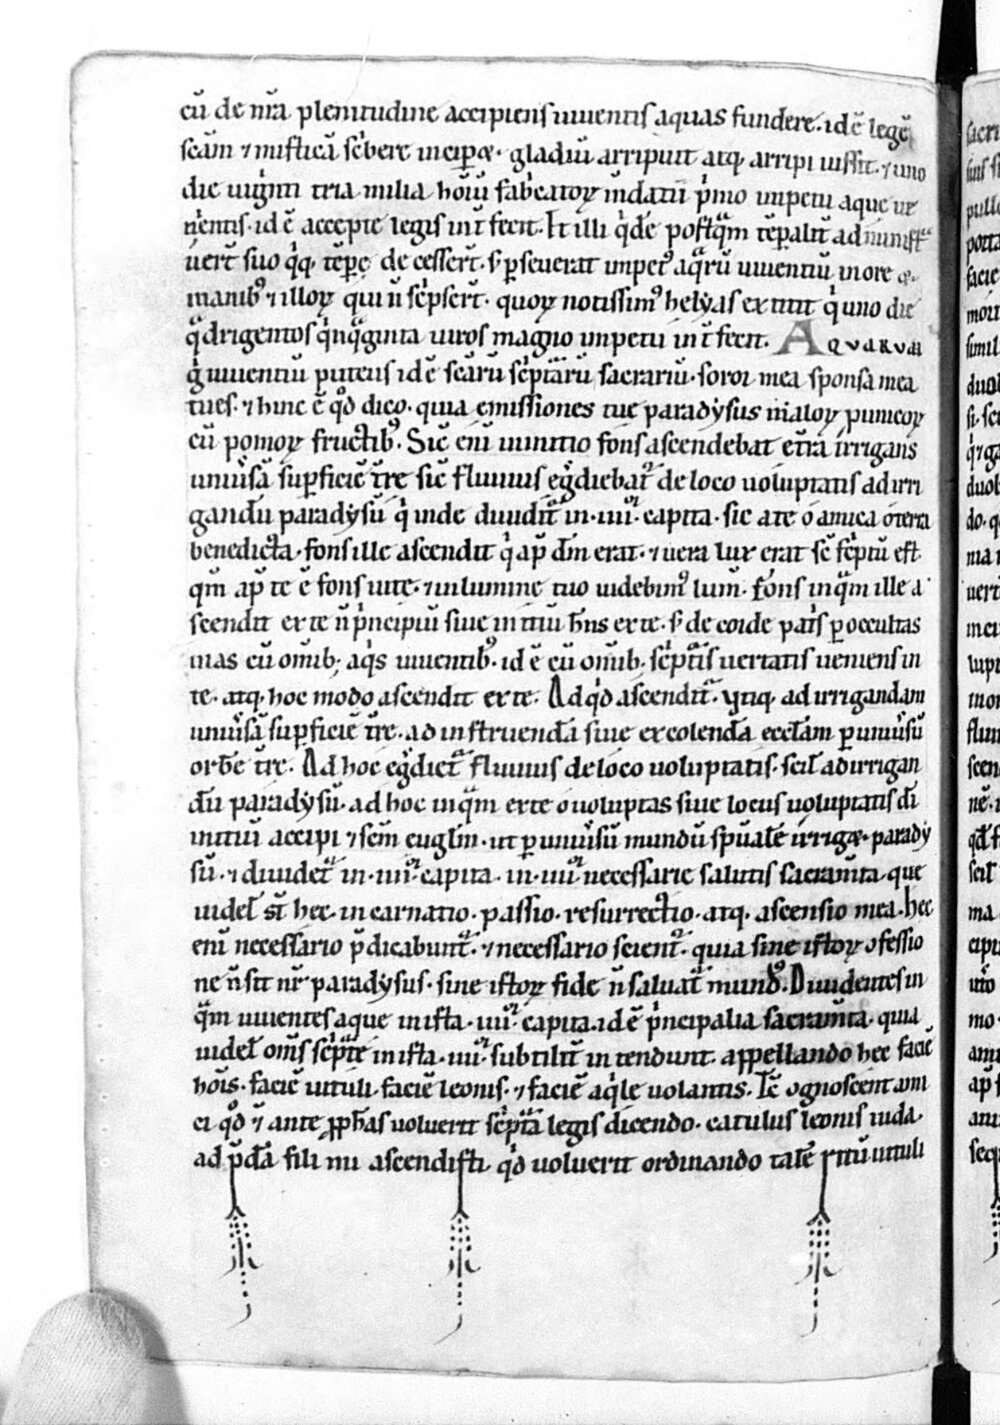 cū de nr̄a plenitudine accipiens uiuentis aquas fundere. id ē legē
scām ⁊ mistica᷒ sc̄bere inciper&. gladiū arripuit atq; arripi iussit. ⁊ uno
die uiginti tria milia hoīu᷒ fabͥcatoꝝ ūdatū pͥmo impetu aque ui
uentis. id ē accepte legis int̄fecit. Et illi qͥdē postqᷓm tēpalit̄ administᷓ
uer̄t suo qͥq; tēpe decesser̄t. s; pseuerat impet᷒ aqᷓrū uiuentiū more
manib᷒ ⁊ illoꝝ qui n̄ scͥpser̄t. quoꝝ notissim᷒ helyas extitit qͥ uno die
qᷓdrigentos qͥnqᷓginta uiros magno impetu int̄fecit. AQVARVM
gͥ uiuentiū puteus id ē scārū scͥptᷓrū sacrariū. soror mea sponsa mea
tu es. ⁊ hinc ē qd̄ dico. quia emissiones tue paradysus maloꝝ punicoꝝ
cū pomoꝝ fructib᷒. Sic̄ eni᷒ in initio fons ascendebat et̄ra irrigans
uniūsā supficiē t̄re sic̄ fluuius egͤdiebat᷑ de loco uoluptatis ad irri
gandū paradysū qͥ inde diuidit᷑ in .iiii. capita. sic a te o amica o terra
benedicta. fons ille ascendit qͥ ap̄ dm̄ erat. ⁊ uera lux erat sic̄ scͥptū est
qm̄ ap̄ te ē fons uite. ⁊ in lumine tuo uidebim᷒ lum̄. Fons inqᷓm ille a
scendit ex te n̄ pͥncipiū siue initiū hn̄s ex te. s; de corde patͥs p occultas
uias cū om̄ib; aqͥs uiuentib᷒. id ē cū om̄ib; scͥptᷓis ueritatis ueniens in
te. atq; hoc modo ascendit ex te. Ad qͥd ascendit᷑. Vtiq; ad irrigandam
uniūsā supficiē t̄re. ad instruendā siue excolendā eccl̄am p uniūsū
orbē t̄re. Ad hoc egͤdiet᷑ fluuius de loco uoluptatis. scil̄ ad irrigan
dū paradysū. ad hoc inqᷓm ex te o uoluptas siue locus uoluptatis dī
initiū accipi⁊ scm̄ euglm̄. ut p uniūsū mundū spūalē irrig& parady
sū. ⁊ diuidet᷑ in .iiii. capita. in .iiii. necessarie salutis sacram̄ta. que
uidel̄ st̄ hec. incarnatio. passio. resurrectio. atq; ascensio mea. hec
enī necessario p̄dicabunt᷑. ⁊ necessario scient᷑. quia sine istoꝝ ꝯfessio
ne n̄ sit nr̄ paradysus. sine istoꝝ fide n̄ saluat᷑ mund᷒. Diuidentes in
qᷓm uiuentes aque in ista .iiii. capita. id ē pͥncipalia sacram̄ta. quia
uidel̄ om̄s scͥpt̄e in ista .iiii. subtilit̄ intendunt. appellando hec faciē
hoīs. faciē uituli. faciē leonis. ⁊ faciē aqͥle uolantis. It̄e ꝯgnoscent ami
ci qd̄ ⁊ ante ꝓph̄as uoluerit scͥptᷓa legis dicendo. catulus leonis iuda.
ad p̄dā fili mi ascendisti. qͥd uoluerit ordinando talē ritū uituli